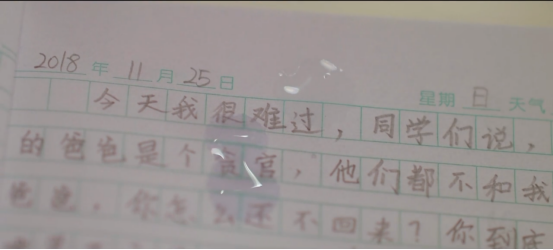 2018年11月25日 星期日 天气
今天我很难过，同学们说，
的爸爸是个贪官，他们都不和我
爸爸，你怎么还不回来？你到底